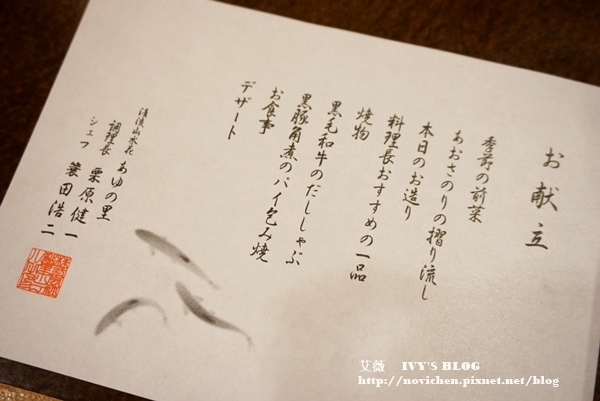 お献立
季節の前菜
あおさのりの摺り流し
本日のお造り
料理長おすすめの一品
焼物
黒毛和牛のだししゃぶ
黒豚角煮のパイ包み焼
お食事
デザート
清流山水花
あゆの里
調理長 栗原健一
シェフ 簑田浩二
艾薇 IVY'S BLOG
http://novichen.pixnet.net/blog